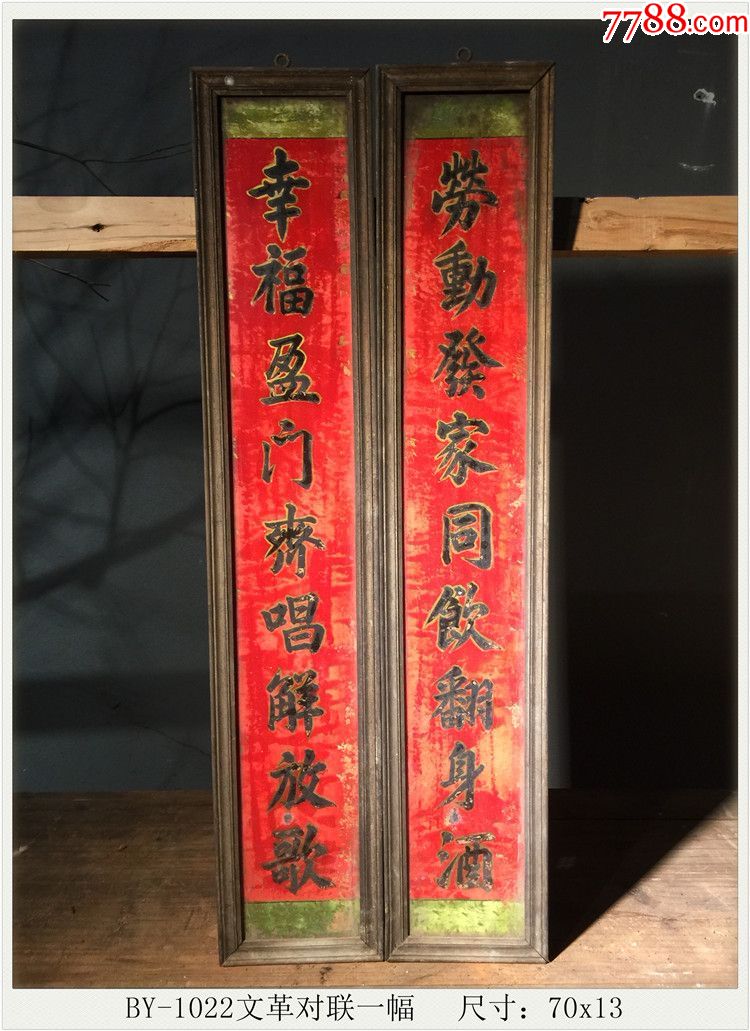 7788.com
勞動發家同飲翻身酒
幸福盈门齊唱解放歌
BY-1022文革对联一幅 尺寸：70x13